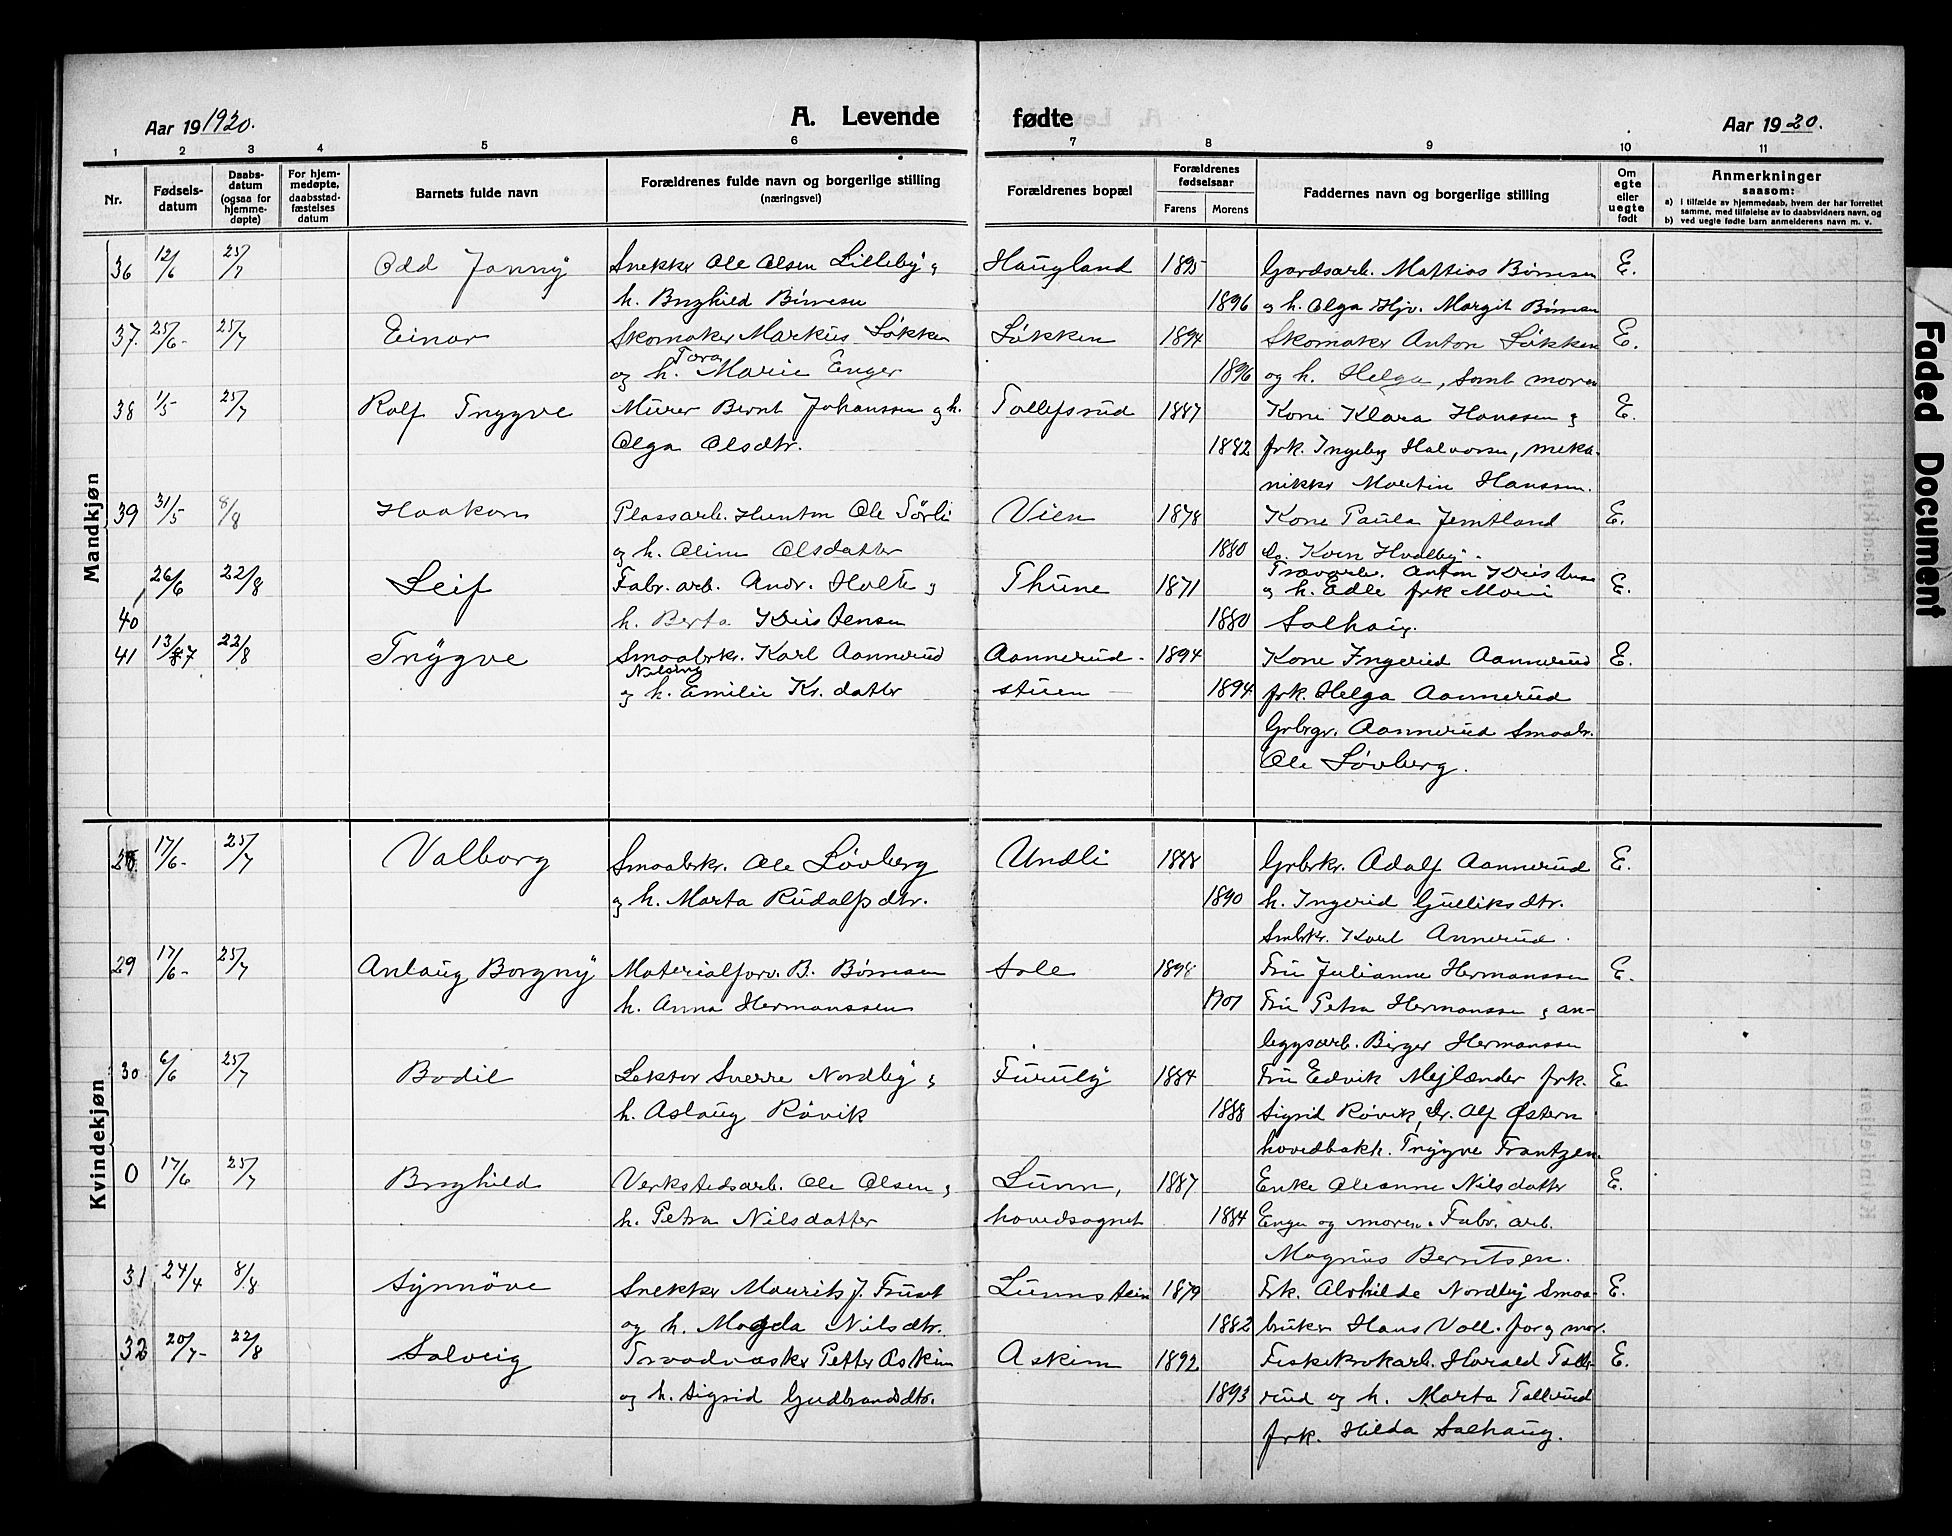 Aar 191920.
A. Levende
fødte
Aar 1920.
1 2 3 4 5 6 7 8 9 10 11
Nr.
Fødsels-
datum
Daabs-
datum
(ogsaa for
hjemme-
døpte)
For hjem-
medøpte,
daabsstad-
fæstelses
datum
Barnets fulde navn
Forældrenes fulde navn og borgerlige stilling
(næringsvei)
Forældrenes bopæl
Forældrenes
fødselsaar
Farens Morens
Faddernes navn og borgerlige stilling
Om
egte
eller
uegte
født
Anmerkninger
saasom:
a) i tilfælde av hjemmedaab, hvem der har forrettet
samme, med tilføielse av to daabsvidners navn, og
b) ved uegte fødte barn anmelderens navn m. v.
Mandkjøn
36 12/6 25/7 Odd Jonny Snekker Ole Olsen Lilleby & Haugland 1895 Gardsarb. Mattias Børresen E.
h. Borghild Børresen 1896 & h. Olga Hjv. Margit Børresen
37. 25/6- 25/7 Einar Skomaker Markus Løkken Løkken 1894 Skomaker Anton Løkken E.
Tora
og h. Marie Enger 1896 og h. Helga, samt moren
38 1/5 25/7 Rolf Trygve Murer Bernt Johanssen og h. Tollefsrud 1887 Kone Klara Hanssen & E.
Olga Olsdtr. 1882 frk. Ingeby Halvorsen, meka-
nikker Martin Hanssen.
39 31/5 8/8 Haakon Plassarb. Hunton Ole Sørli Vien 1878 Kone Paula Jemtland E.
og h. Oline Olsdatter 1880 do. Karen Hvalby.
40 26/6 22/8 Leif Fabr. arb. Andr. Holte & Thune 1871 Trævarb. Anton Kristensen E.
& h. Edle frk Marie
h. Berta Kristensen 1880 Solhaug.
41 13/7 22/8 Trygve Smaabrkr. Karl Aannerud Aannerud- 1894 Kone Ingerid Aannerud E.
og h. Emilie Kr. datter stuen 1894 frk. Helga Aannerud
Grbrgr. Aannerud Smaabr.
Ole Løvberg.
Kvindekjøn
28. 17/6- 25/7 Valborg Smaabrkr. Ole Løvberg Undli 1888 Grbrkr. Adolf Aannerud E.
og h. Marta Rudolfsdtr. 1890 h. Ingerid Gulliksdtr.
Smbrkr. Karl Annerud.
29 17/6- 25/7 Anlaug Borgny Materialforv. B. Børresen Sole 1898 Fru Julianne Hermanssen E.
h. Anna Hermanssen 1901 Fru Petra Hermanssen & an-
leggsarb. Birger Hermanssen
30 6/6 25/7 Bodil Lektor Sverre Nordby & Furuly 1884 Fru Edvik Mejlænder frk. E.
h. Aslaug Røvik 1888 Sigrid Røvik, Dr. Alf Østern
hovedbokh. Trygve Frantzen.
0 17/6 25/7 Borghild Verkstedsarb. Ole Olsen & Lunn, 1887 Enke Oleanne Nilsdatter E.
h. Petra Nilsdatter hovedsognet 1884 Enger og moren. Fabr. arb.
Magnus Berntsen.
31 24/4 8/8 Synnöve Snekker Maurits J. Trust Lunnstein 1879 Frk. Alvhilde Nordby Smaa- E.
og h. Magda Nilsdtr. 1882 bruker Hans Voll. far og mor.
32 20/7- 22/8 Solveig Traadvasker Petter Askim Askim 1892 Fiskekrokarb. Harald Tolle- E.
og h. Sigrid Gudbrandsdtr. 1893 rud og h. Marta Tollerud
frk. Hilda Solhaug.
Faded Document